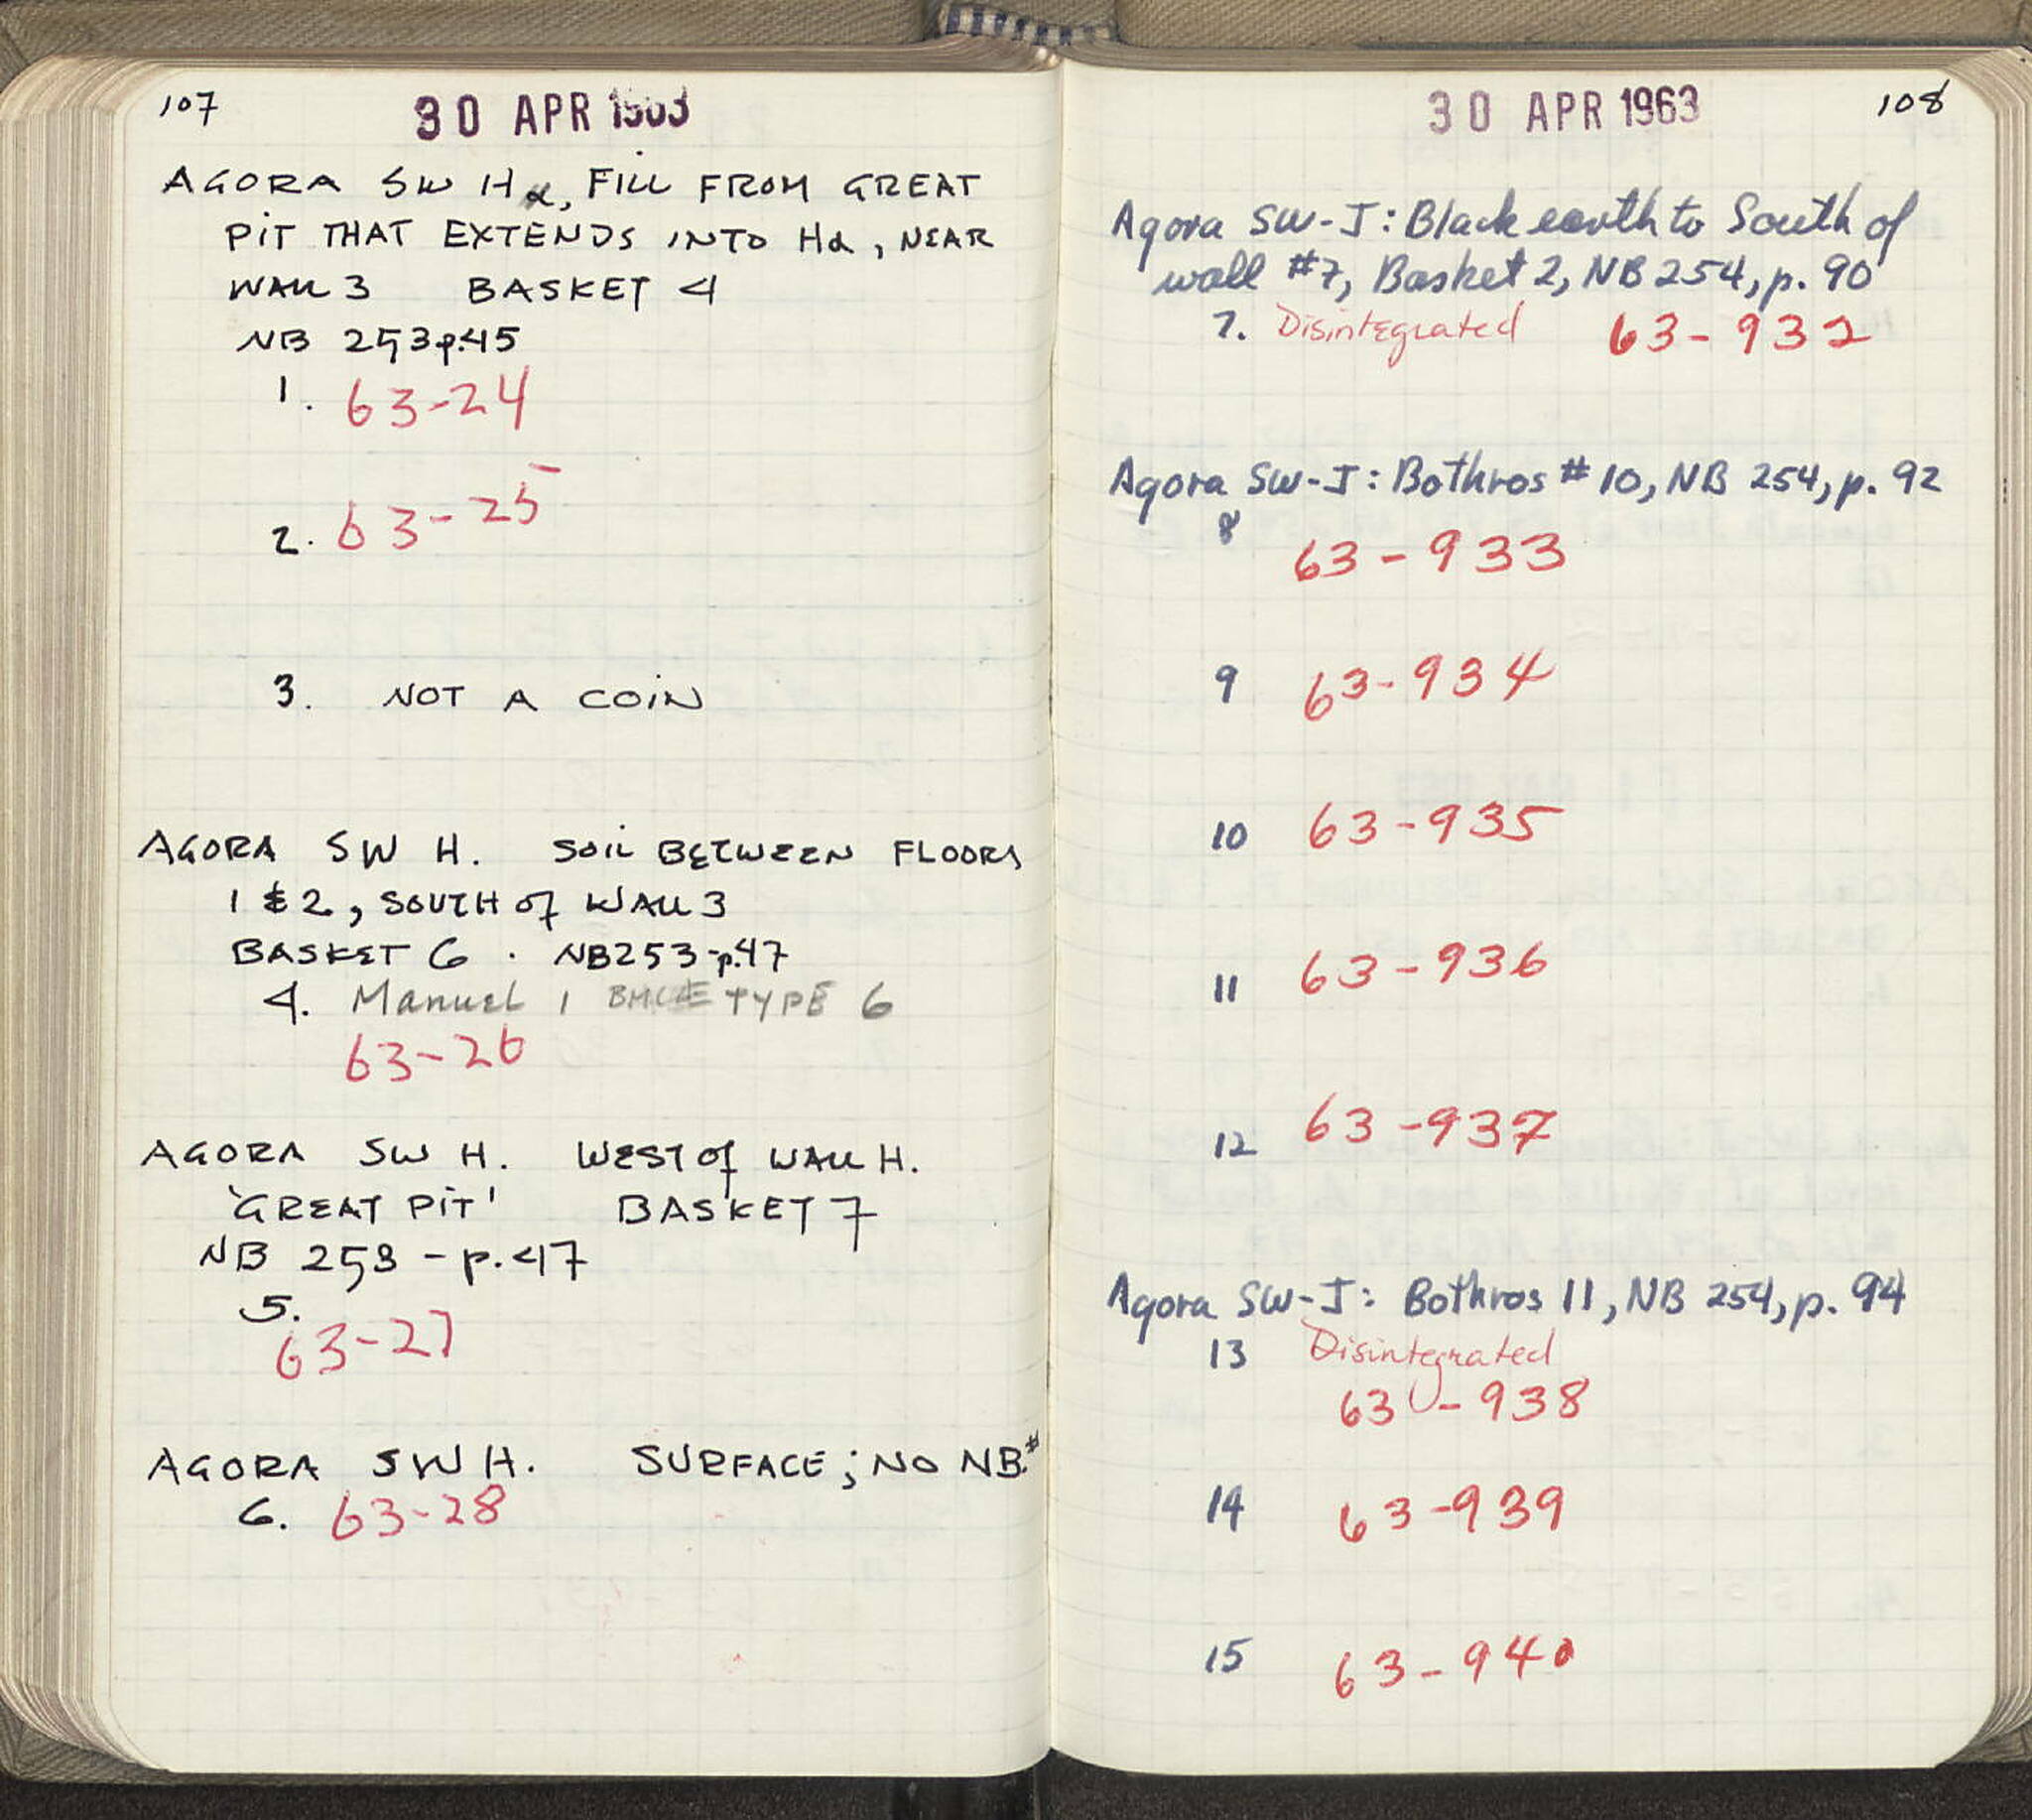 107
30 APR 1963
AGORA SW Hα, FILL FROM GREAT
PIT THAT EXTENDS INTO Hα, NEAR
WALL 3 BASKET 4
NB 253 p.45
1. 63-24
2. 63-25
3. NOT A COIN
AGORA SW H. SOIL BETWEEN FLOORS
1 & 2, SOUTH of WALL 3
BASKET 6 . NB253-p.47
4. Manuel I TYPE 6
63-26
AGORA SW H. WEST of WALL H.
'GREAT PIT' BASKET 7
NB 253 - p.47
5.
63-27
AGORA SW H. SURFACE; NO NB.#
6. 63-28
30 APR 1963
108
Agora SW-J: Black earth to South of
wall #7, Basket 2, NB 254, p. 90
7. Disintegrated 63-932
Agora SW-J: Bothros #10, NB 254, p. 92
8
63-933
9 63-934
10 63-935
11 63-936
12 63-937
Agora SW-J: Bothros 11, NB 254, p. 94
13 Disintegrated
63-938
14 63-939
15 63-940